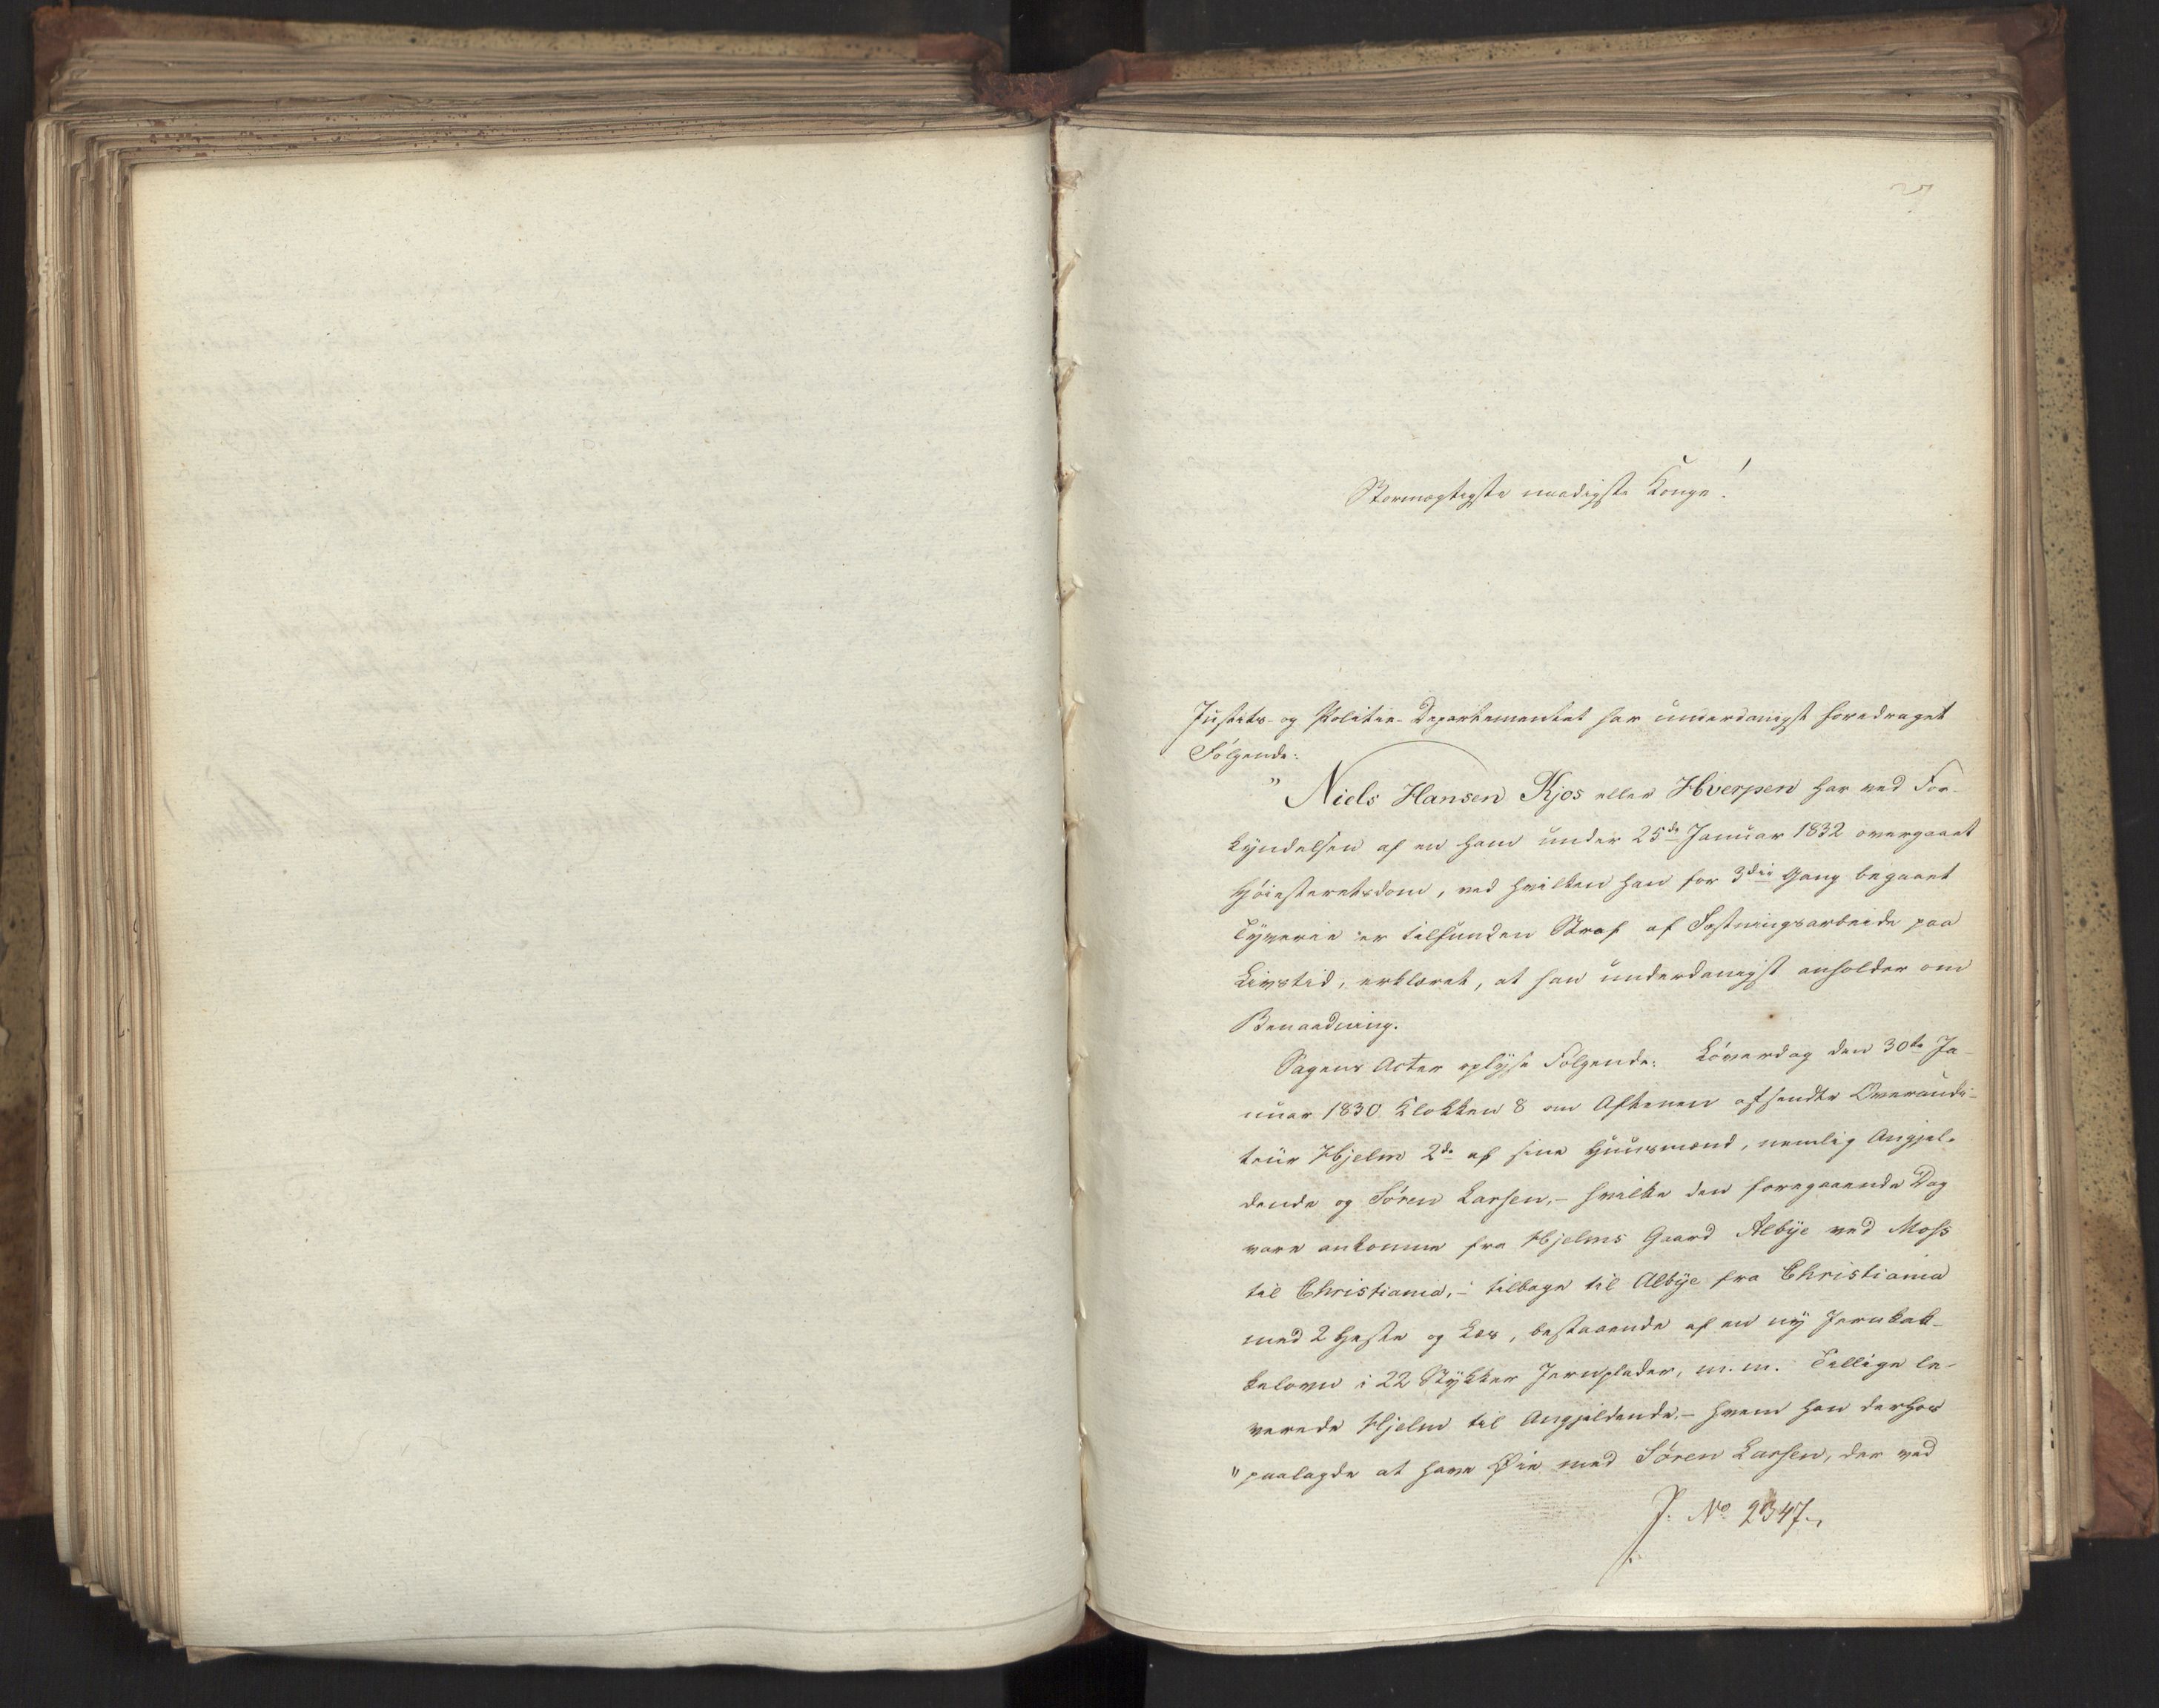 Stormægtigste naadigste Konge!
Justits- og Politie-Departementet har underdanigst foredraget
Følgende:
" Niels Hansen Kjos eller Hverpen har ved For-
kyndelsen af en ham under 25de Januar 1832 overgaaet
Høiesteretsdom, ved hvilken han for 3die Gang begaaet
Tyverie er tilfunden Straf af Fæstningsarbeide paa
Livstid, erklæret, at han underdanigst anholder om
Benaadning.
Sagens Acter oplyse Følgende: Løverdag den 30te Ja-
nuar 1830 Klokken 8 om Aftenen afsendte Overaudi-
teur Hjelm 2de af sine Huusmænd, nemlig Angjel-
dende og Søren Larsen, - hvilke den foregaaende Dag
vare ankomne fra Hjelms Gaard Albye ved Moss
til Christiania, - tilbage til Albye fra Christiania
med 2 Heste og Læs, bestaaende af en ny Jernkak-
kelovn i 22 Stykker Jernplader, m. m. Tillige le-
verede Hjelm til Angjeldende, - hvem han derhos
" paalagde at have Øie med Søren Larsen, der ved
J. No 2347.